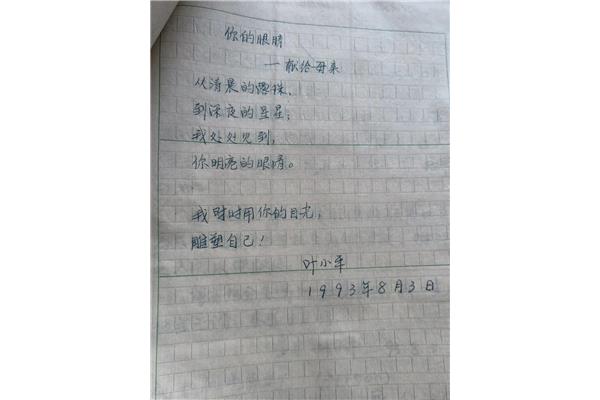 你的眼睛
—献给母亲
从清晨的露珠,
到深夜的星星;
我处处见到,
你明亮的眼睛。
我时时用你的目光,
雕塑自己!
叶小军
1993年8月3日